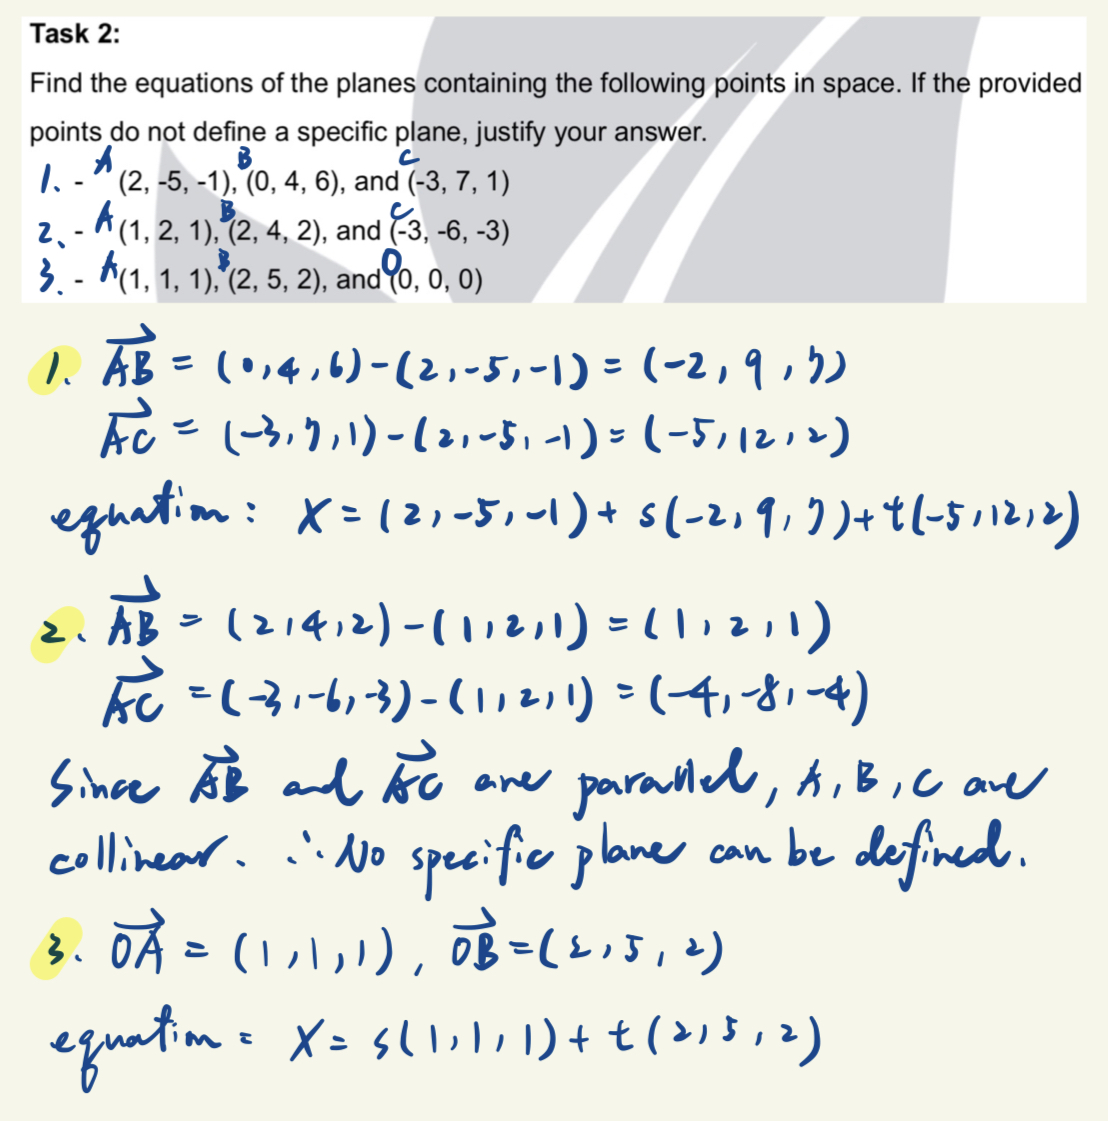 Task 2:
Find the equations of the planes containing the following points in space. If the provided
points do not define a specific plane, justify your answer.
1. - A (2, -5, -1), B (0, 4, 6), and C (-3, 7, 1)
2. - A (1, 2, 1), B (2, 4, 2), and C (-3, -6, -3)
3. - A (1, 1, 1), B (2, 5, 2), and O (0, 0, 0)
1. AB = (0, 4, 6) - (2, -5, -1) = (-2, 9, 7)
AC = (-3, 7, 1) - (2, -5, -1) = (-5, 12, 2)
equation: X = (2, -5, -1) + s(-2, 9, 7) + t(-5, 12, 2)
2. AB = (2, 4, 2) - (1, 2, 1) = (1, 2, 1)
AC = (-3, -6, -3) - (1, 2, 1) = (-4, -8, -4)
Since AB and AC are parallel, A, B, C are
collinear. ∴ No specific plane can be defined.
3. OA = (1, 1, 1), OB = (2, 5, 2)
equation = X = s(1, 1, 1) + t(2, 5, 2)